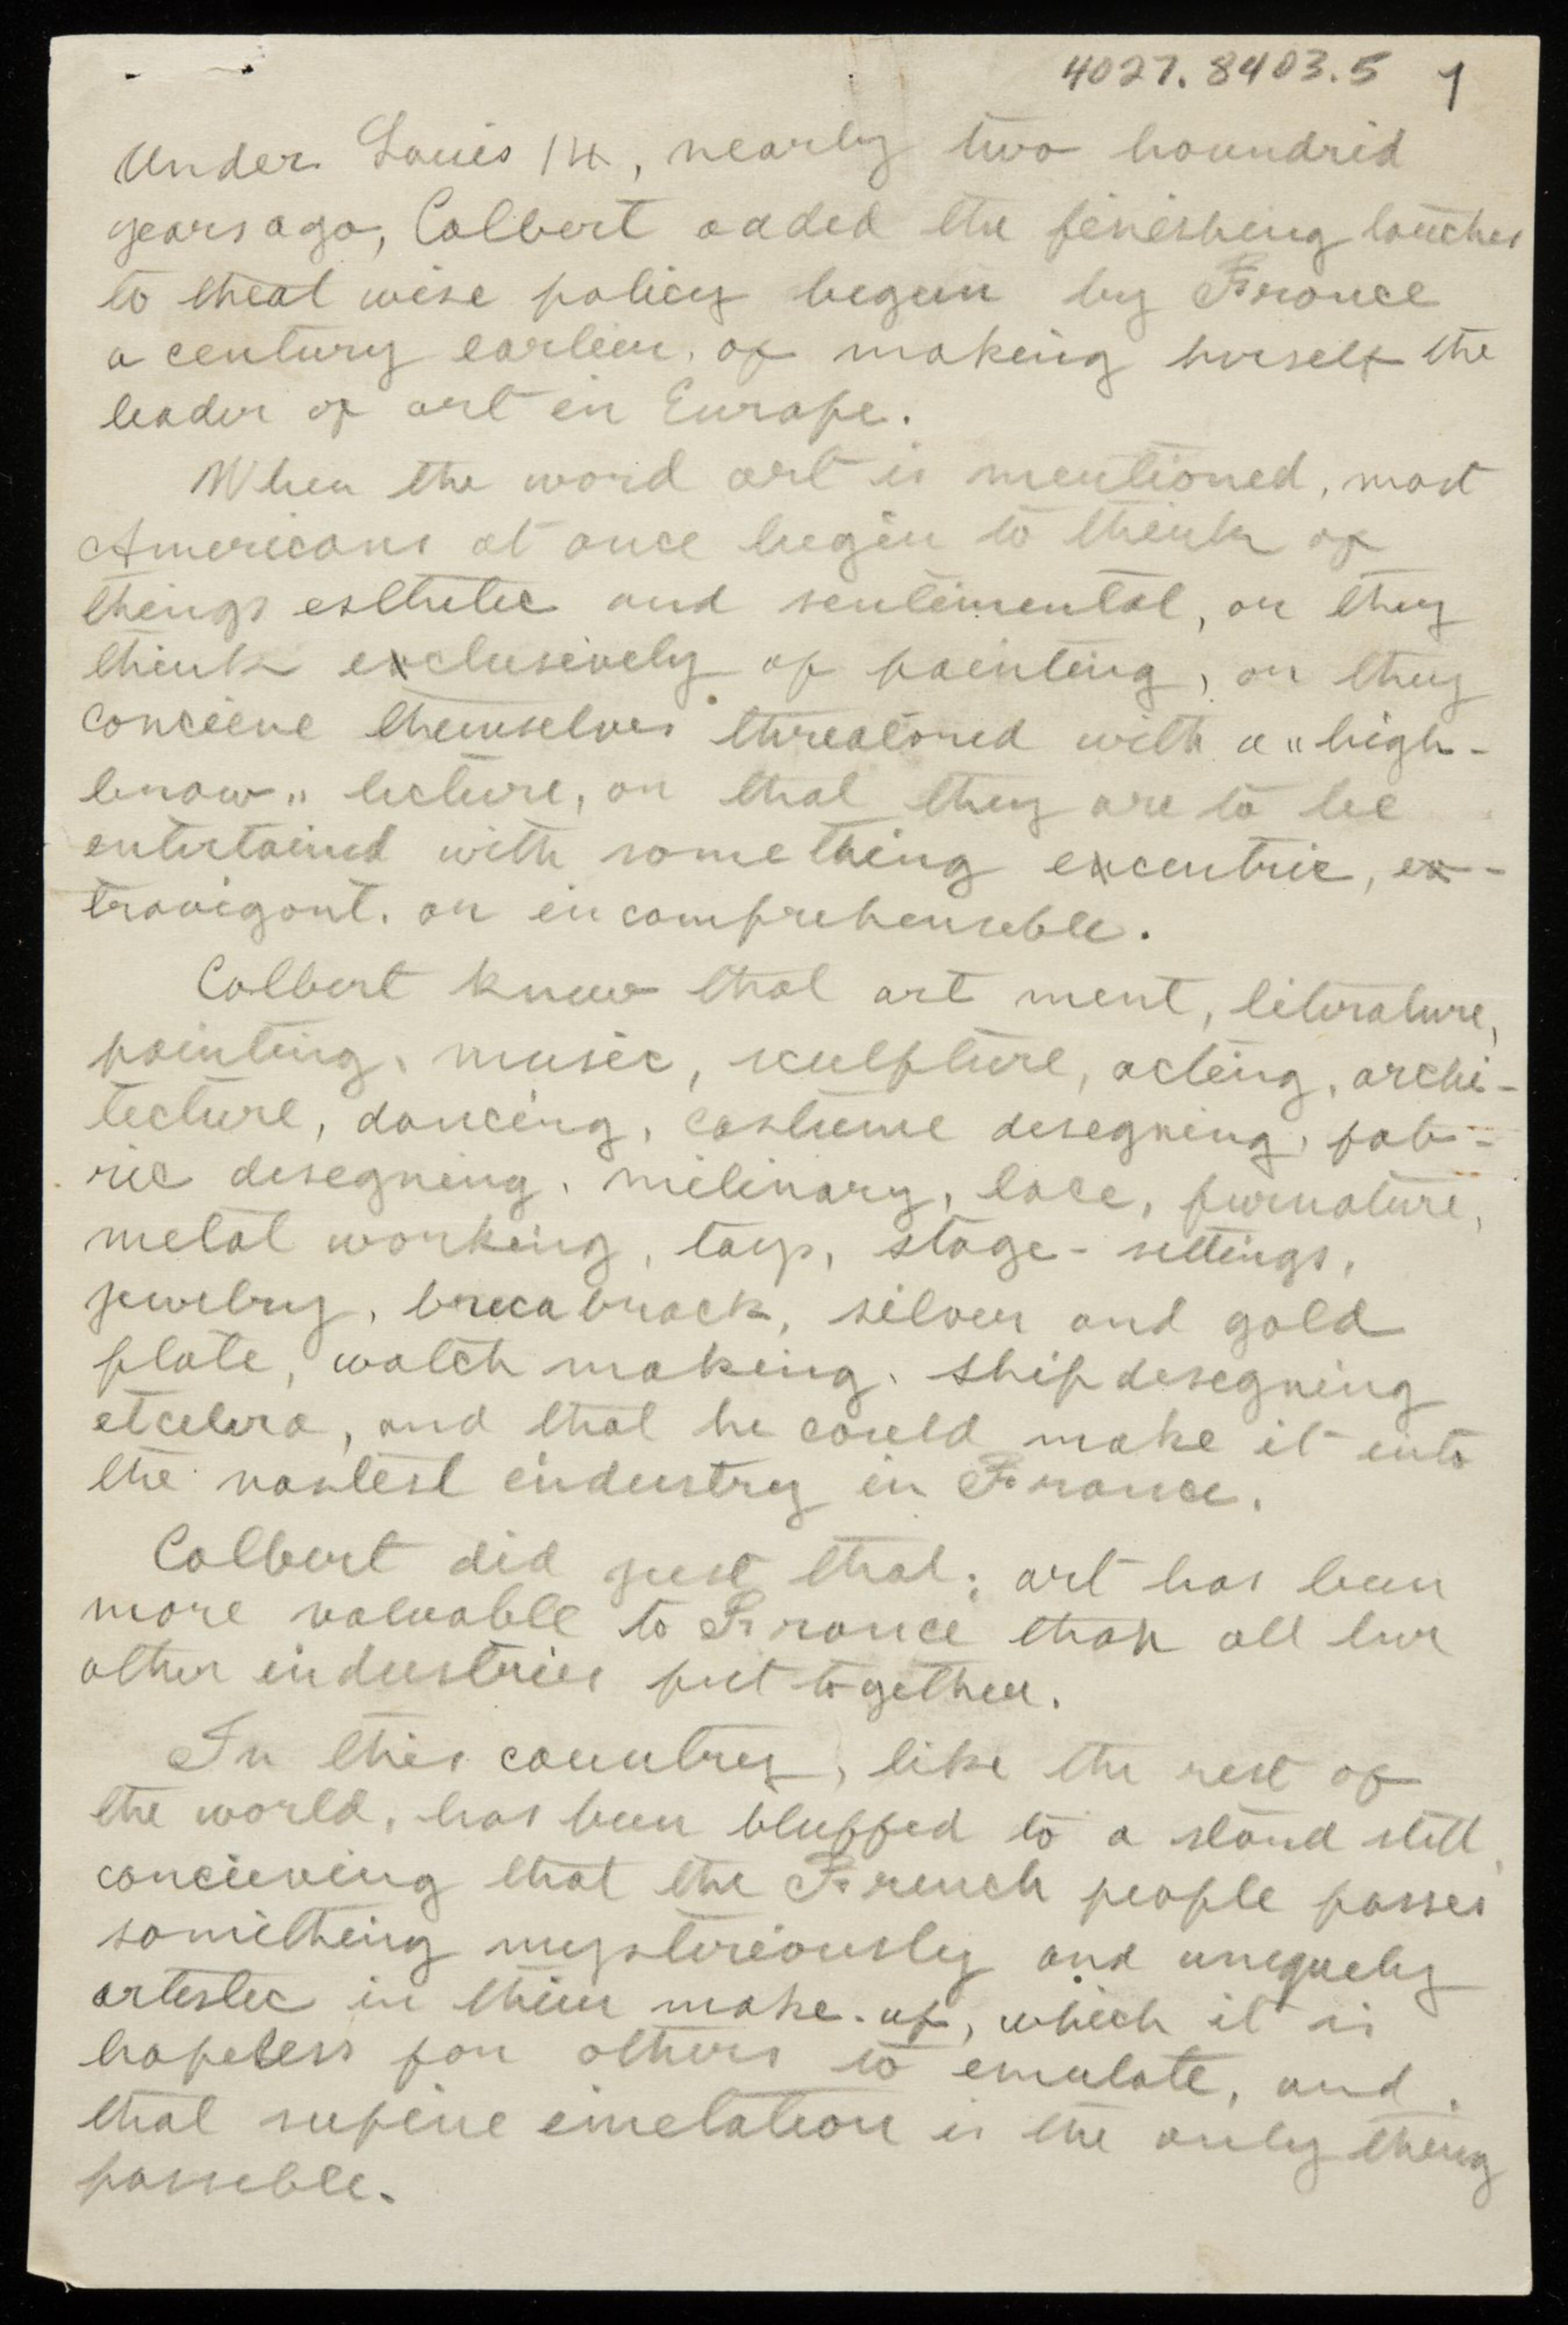 4027.8403.5 1
Under Louis 14, nearly two houndrid
years ago, Colbert added the finishing touches
to that wise policy begun by France
a century earlier, of making herself the
leader of art in Europe.
When the word art is mentioned, most
Americans at once begin to think of
things esthetic and sentimental, or they
think exclusively of painting, or they
concieve themselves threatoned with a "high-
brow" lecture, or that they are to be
entertained with some thing excentric, ex-
travigant, or incomprehensible.
Colbert knew that art ment, literature,
painting, music, sculpture, acting, archi-
tecture, dancing, costume designing, fab-
ric designing, milinary, lace, furnature,
metal working, toys, stage-settings,
jewelry, bricabrack, silver and gold
plate, watch making, ship designing
etcetera, and that he could make it into
the vastest industry in France.
Colbert did just that; art has been
more valuable to France than all her
other industries put together.
In this country, like the rest of
the world, has been bluffed to a stand still,
concieving that the French people posses
something mysteriously and uniquely
artistic in thier make-up, which it is
hopeless for others to emulate, and
that supine imetation is the only thing
possible.